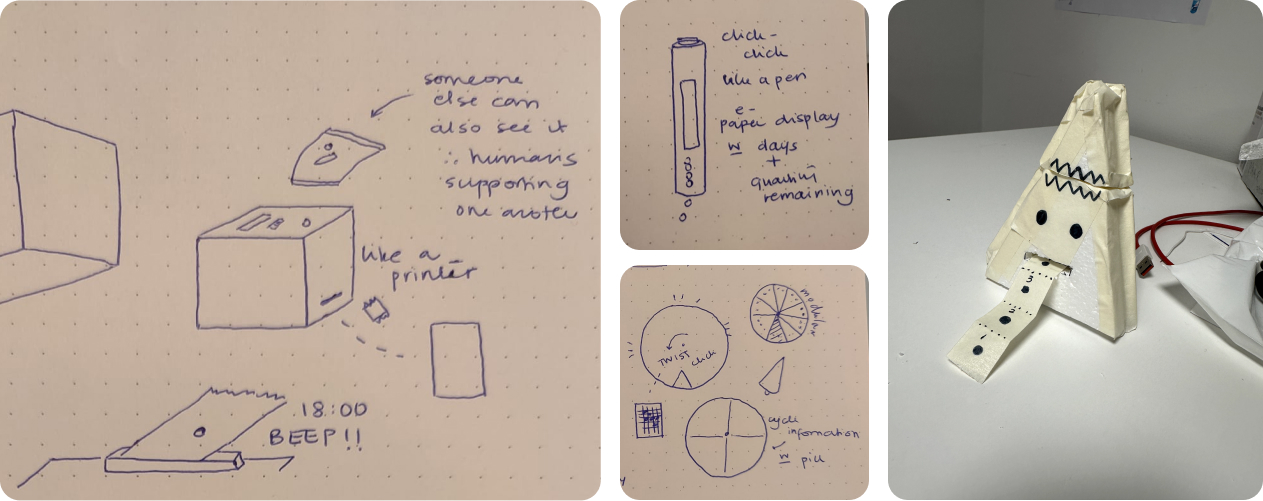 someone
else can
also see it
∴ humans
supporting
one another
like a
printer
18:00
BEEP!!
click-
click
like a pen
e-
paper display
w days
+
quantity
remaining
TWIST
click
modular
cycle
information
w pill
3
2
1